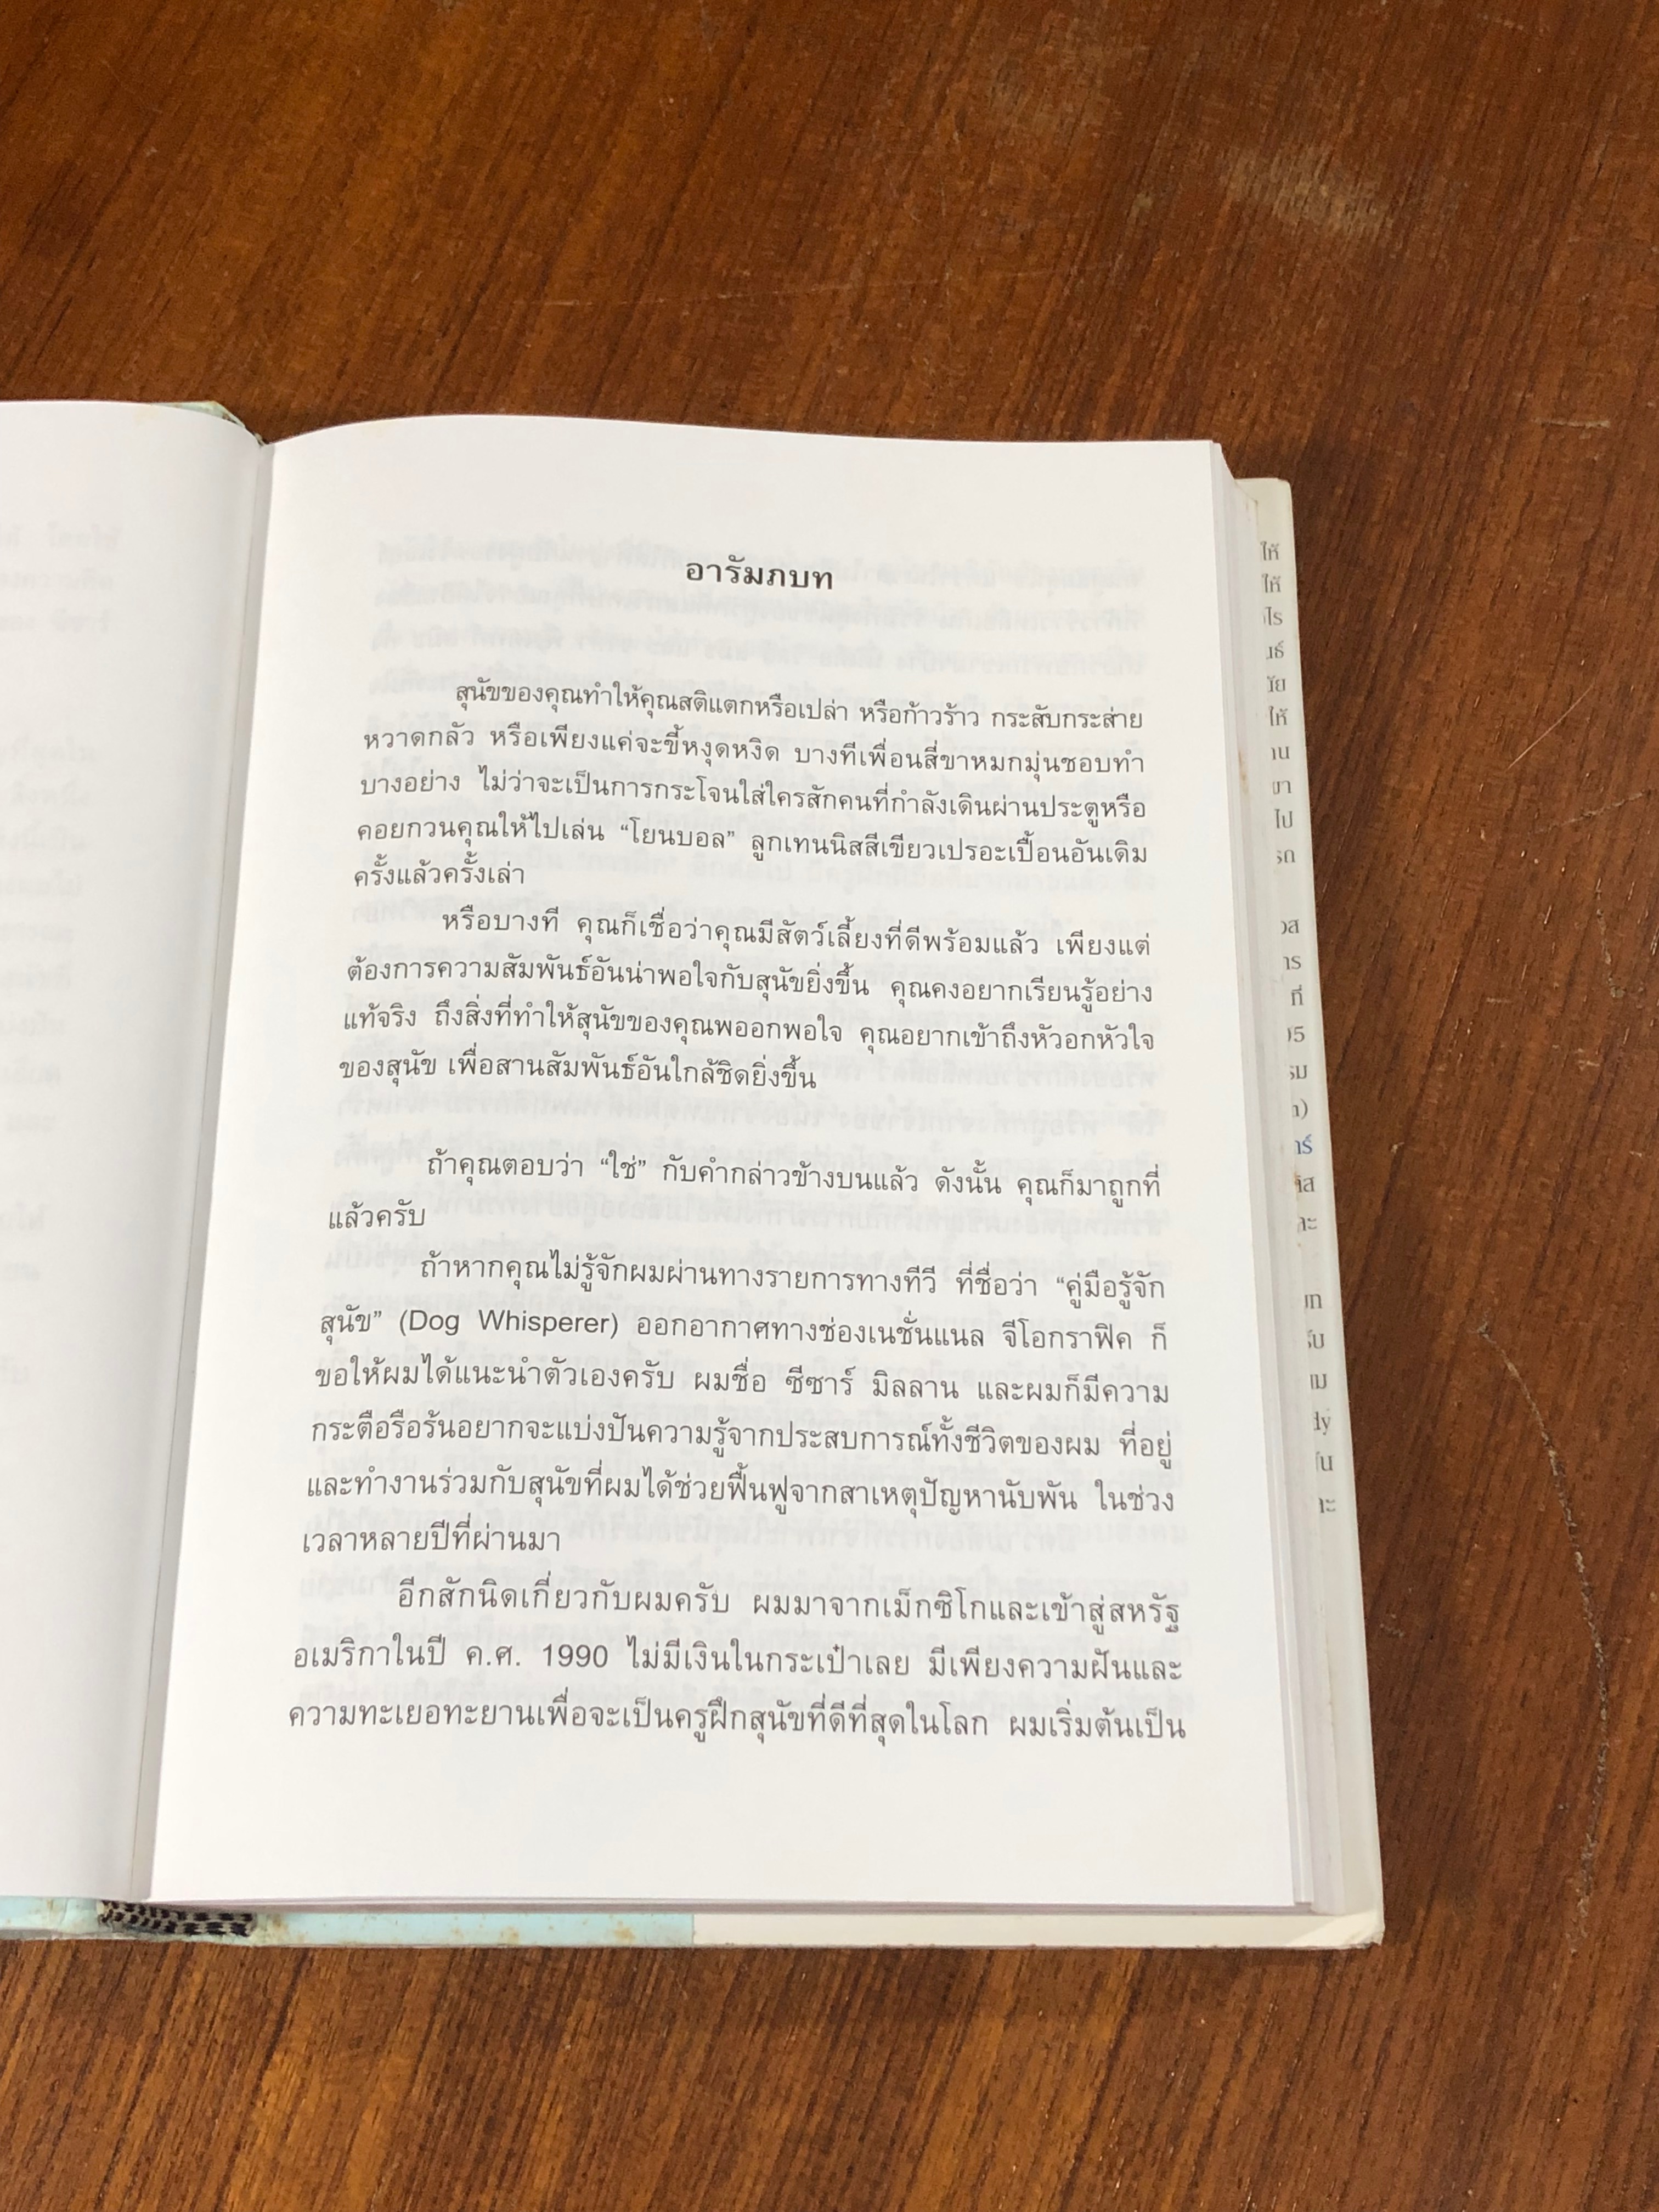 อารัมภบท
สุนัขของคุณทำให้คุณสติแตกหรือเปล่า หรือก้าวร้าว กระสับกระส่าย
หวาดกลัว หรือเพียงแค่จะขี้หงุดหงิด บางทีเพื่อนสี่ขาหมกมุ่นชอบทำ
บางอย่าง ไม่ว่าจะเป็นการกระโจนใส่ใครสักคนที่กำลังเดินผ่านประตูหรือ
คอยกวนคุณให้ไปเล่น “โยนบอล” ลูกเทนนิสสีเขียวเปรอะเปื้อนอันเดิม
ครั้งแล้วครั้งเล่า
หรือบางที คุณก็เชื่อว่าคุณมีสัตว์เลี้ยงที่ดีพร้อมแล้ว เพียงแต่
ต้องการความสัมพันธ์อันน่าพอใจกับสุนัขยิ่งขึ้น คุณคงอยากเรียนรู้อย่าง
แท้จริง ถึงสิ่งที่ทำให้สุนัขของคุณพออกพอใจ คุณอยากเข้าถึงหัวอกหัวใจ
ของสุนัข เพื่อสานสัมพันธ์อันใกล้ชิดยิ่งขึ้น
ถ้าคุณตอบว่า “ใช่” กับคำกล่าวข้างบนแล้ว ดังนั้น คุณก็มาถูกที่
แล้วครับ
ถ้าหากคุณไม่รู้จักผมผ่านทางรายการทางทีวี ที่ชื่อว่า “คู่มือรู้จัก
สุนัข” (Dog Whisperer) ออกอากาศทางช่องเนชั่นแนล จีโอกราฟิค ก็
ขอให้ผมได้แนะนำตัวเองครับ ผมชื่อ ซีซาร์ มิลลาน และผมก็มีความ
กระตือรือร้นอยากจะแบ่งปันความรู้จากประสบการณ์ทั้งชีวิตของผม ที่อยู่
และทำงานร่วมกับสุนัขที่ผมได้ช่วยฟื้นฟูจากสาเหตุปัญหานับพัน ในช่วง
เวลาหลายปีที่ผ่านมา
อีกสักนิดเกี่ยวกับผมครับ ผมมาจากเม็กซิโกและเข้าสู่สหรัฐ
อเมริกาในปี ค.ศ. 1990 ไม่มีเงินในกระเป๋าเลย มีเพียงความฝันและ
ความทะเยอทะยานเพื่อจะเป็นครูฝึกสุนัขที่ดีที่สุดในโลก ผมเริ่มต้นเป็น